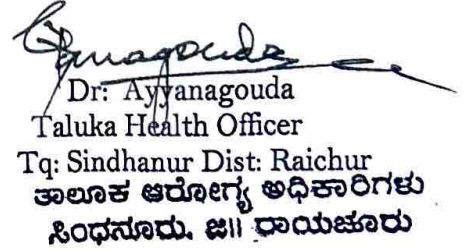 Dr: Ayyanagouda
Taluka Health Officer
Tq: Sindhanur Dist: Raichur
ತಾಲೂಕ ಆರೋಗ್ಯ ಅಧಿಕಾರಿಗಳು
ಸಿಂಧನೂರು. ಜಿ|| ರಾಯಚೂರು